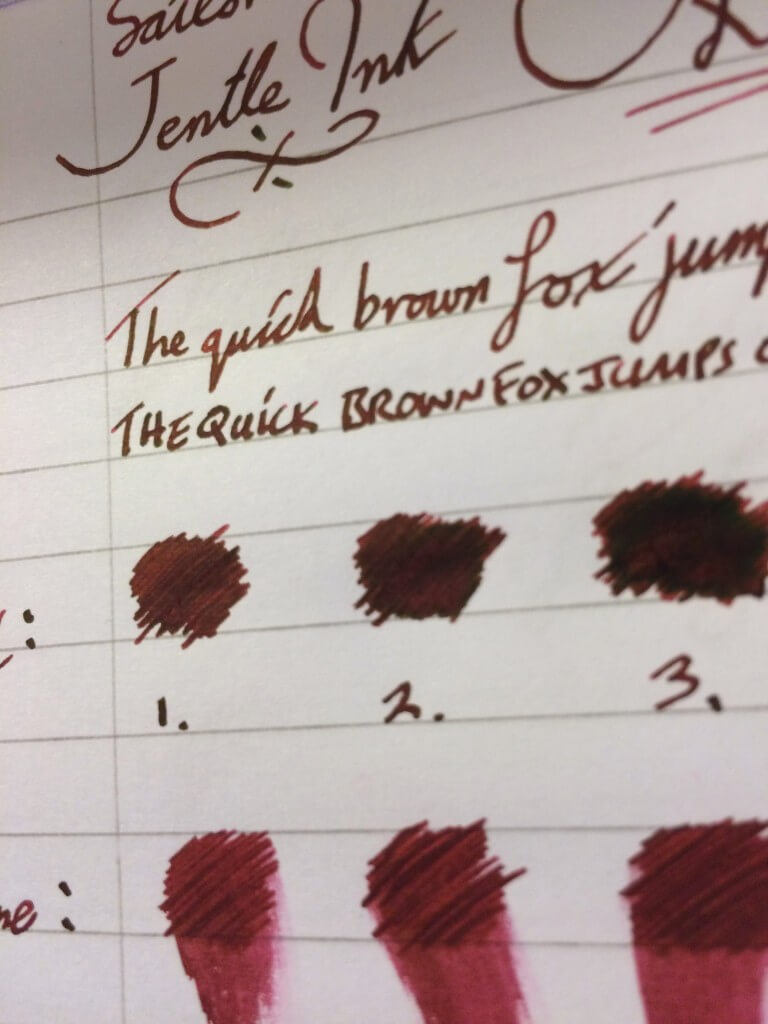 Sailor
Jentle Ink
The quick brown fox jump
THE QUICK BROWN FOX JUMPS
:
1. 2. 3.
ne :